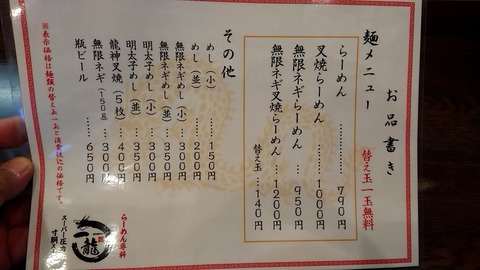 お品書き
麺メニュー
替え玉一玉無料
らーめん ………… 790円
叉焼らーめん ……… 1000円
無限ネギらーめん … 950円
無限ネギ叉焼らーめん … 1200円
替え玉 … 140円
その他
めし(小) …… 150円
めし(並) …… 200円
無限ネギめし(小) … 300円
無限ネギめし(並) … 350円
明太子めし(小) … 300円
明太子めし(並) … 350円
龍神叉焼(5枚) … 400円
無限ネギ(150g) … 300円
瓶ビール …… 650円
※表示価格は麺類の替え玉一玉と消費税込の価格です。
らーめん専科
一龍
スーパー圧力
寸胴